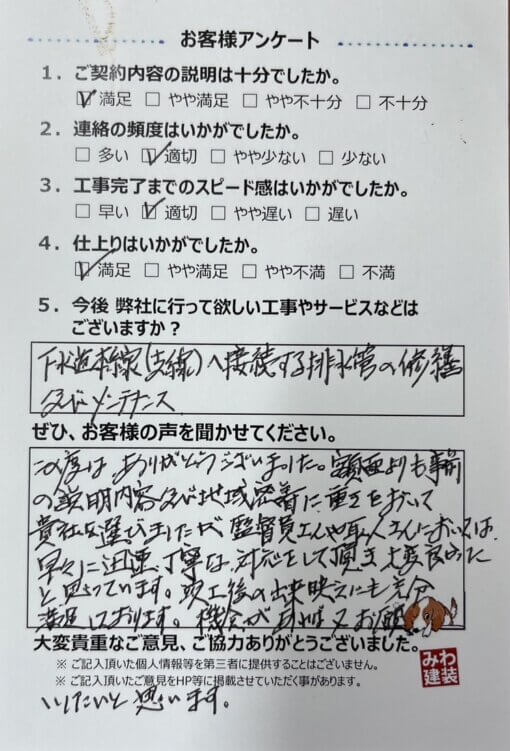 お客様アンケート
1. ご契約内容の説明は十分でしたか。
☑ 満足 □ やや満足 □ やや不十分 □ 不十分
2. 連絡の頻度はいかがでしたか。
□ 多い ☑ 適切 □ やや少ない □ 少ない
3. 工事完了までのスピード感はいかがでしたか。
□ 早い ☑ 適切 □ やや遅い □ 遅い
4. 仕上りはいかがでしたか。
☑ 満足 □ やや満足 □ やや不満 □ 不満
5. 今後 弊社に行って欲しい工事やサービスなどは
ございますか？
下水道本線(支線)へ接続する排水管の修繕
及びメンテナンス
ぜひ、お客様の声を聞かせてください。
この度はありがとうございました。額面よりも事前
の説明内容及び地域密着に重きをおいて
貴社を選びましたが 監督員さんや職人さんにおいては、
早々に迅速、丁寧な対応をして頂き大変良かった
と思っています。竣工後の出来映えにも充分
満足しております。機会があれば又お願
大変貴重なご意見、ご協力ありがとうございました。
※ ご記入頂いた個人情報等を第三者に提供することはございません。
※ ご記入頂いたご意見をHP等に掲載させていただく事があります。
みわ
建装
いしたいと思います。